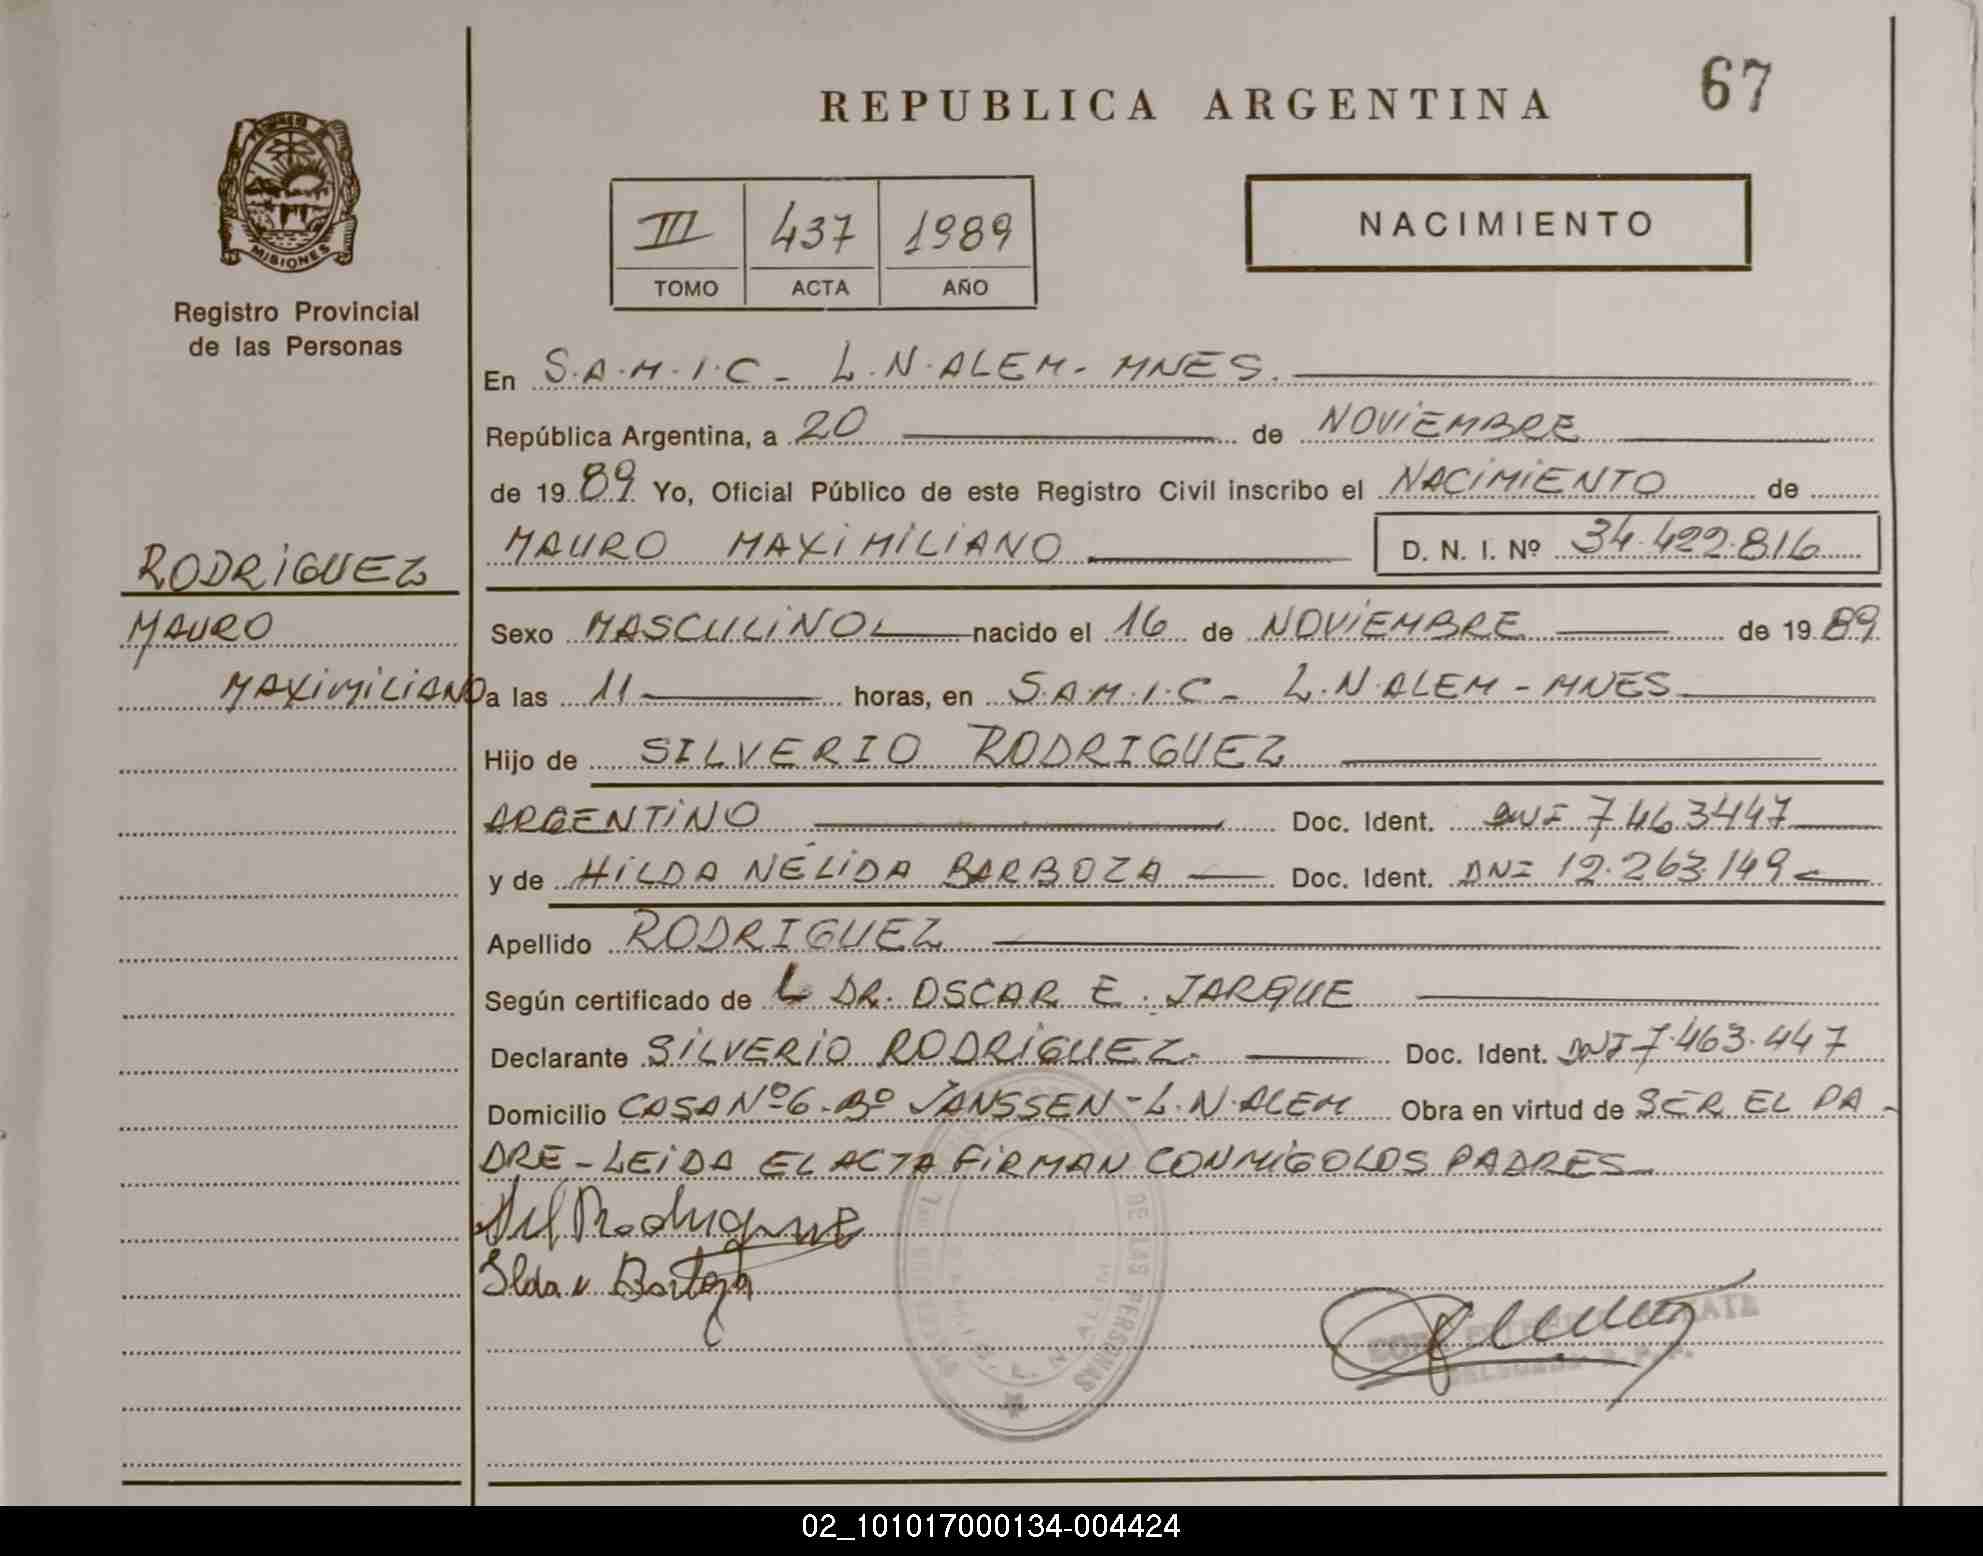 REPUBLICA ARGENTINA
67
MISIONES
Registro Provincial
de las Personas
III 437 1989
TOMO ACTA AÑO
NACIMIENTO
En S.A.M.I.C - L.N.ALEM - MNES.
República Argentina, a 20 de NOVIEMBRE
de 1989 Yo, Oficial Público de este Registro Civil inscribo el NACIMIENTO de
MAURO MAXIMILIANO D. N. I. Nº 34.422.816
RODRIGUEZ
MAURO
MAXIMILIANO
Sexo MASCULINO nacido el 16 de NOVIEMBRE de 1989
a las 11 horas, en S.A.M.I.C - L.N.ALEM - MNES
Hijo de SILVERIO RODRIGUEZ
ARGENTINO Doc. Ident. DNI 7463447
y de HILDA NÉLIDA BARBOZA Doc. Ident. DNI 12.263.149
Apellido RODRIGUEZ
Según certificado de L DR. OSCAR E. JARQUE
Declarante SILVERIO RODRIGUEZ. Doc. Ident. DNI 7.463.447
Domicilio CASA Nº 6 - Bº JANSSEN - L.N.ALEM Obra en virtud de SER EL PA-
DRE - LEIDA EL ACTA FIRMAN CONMIGO LOS PADRES
DE LAS PERSONAS
L. N. ALEM
02_101017000134-004424